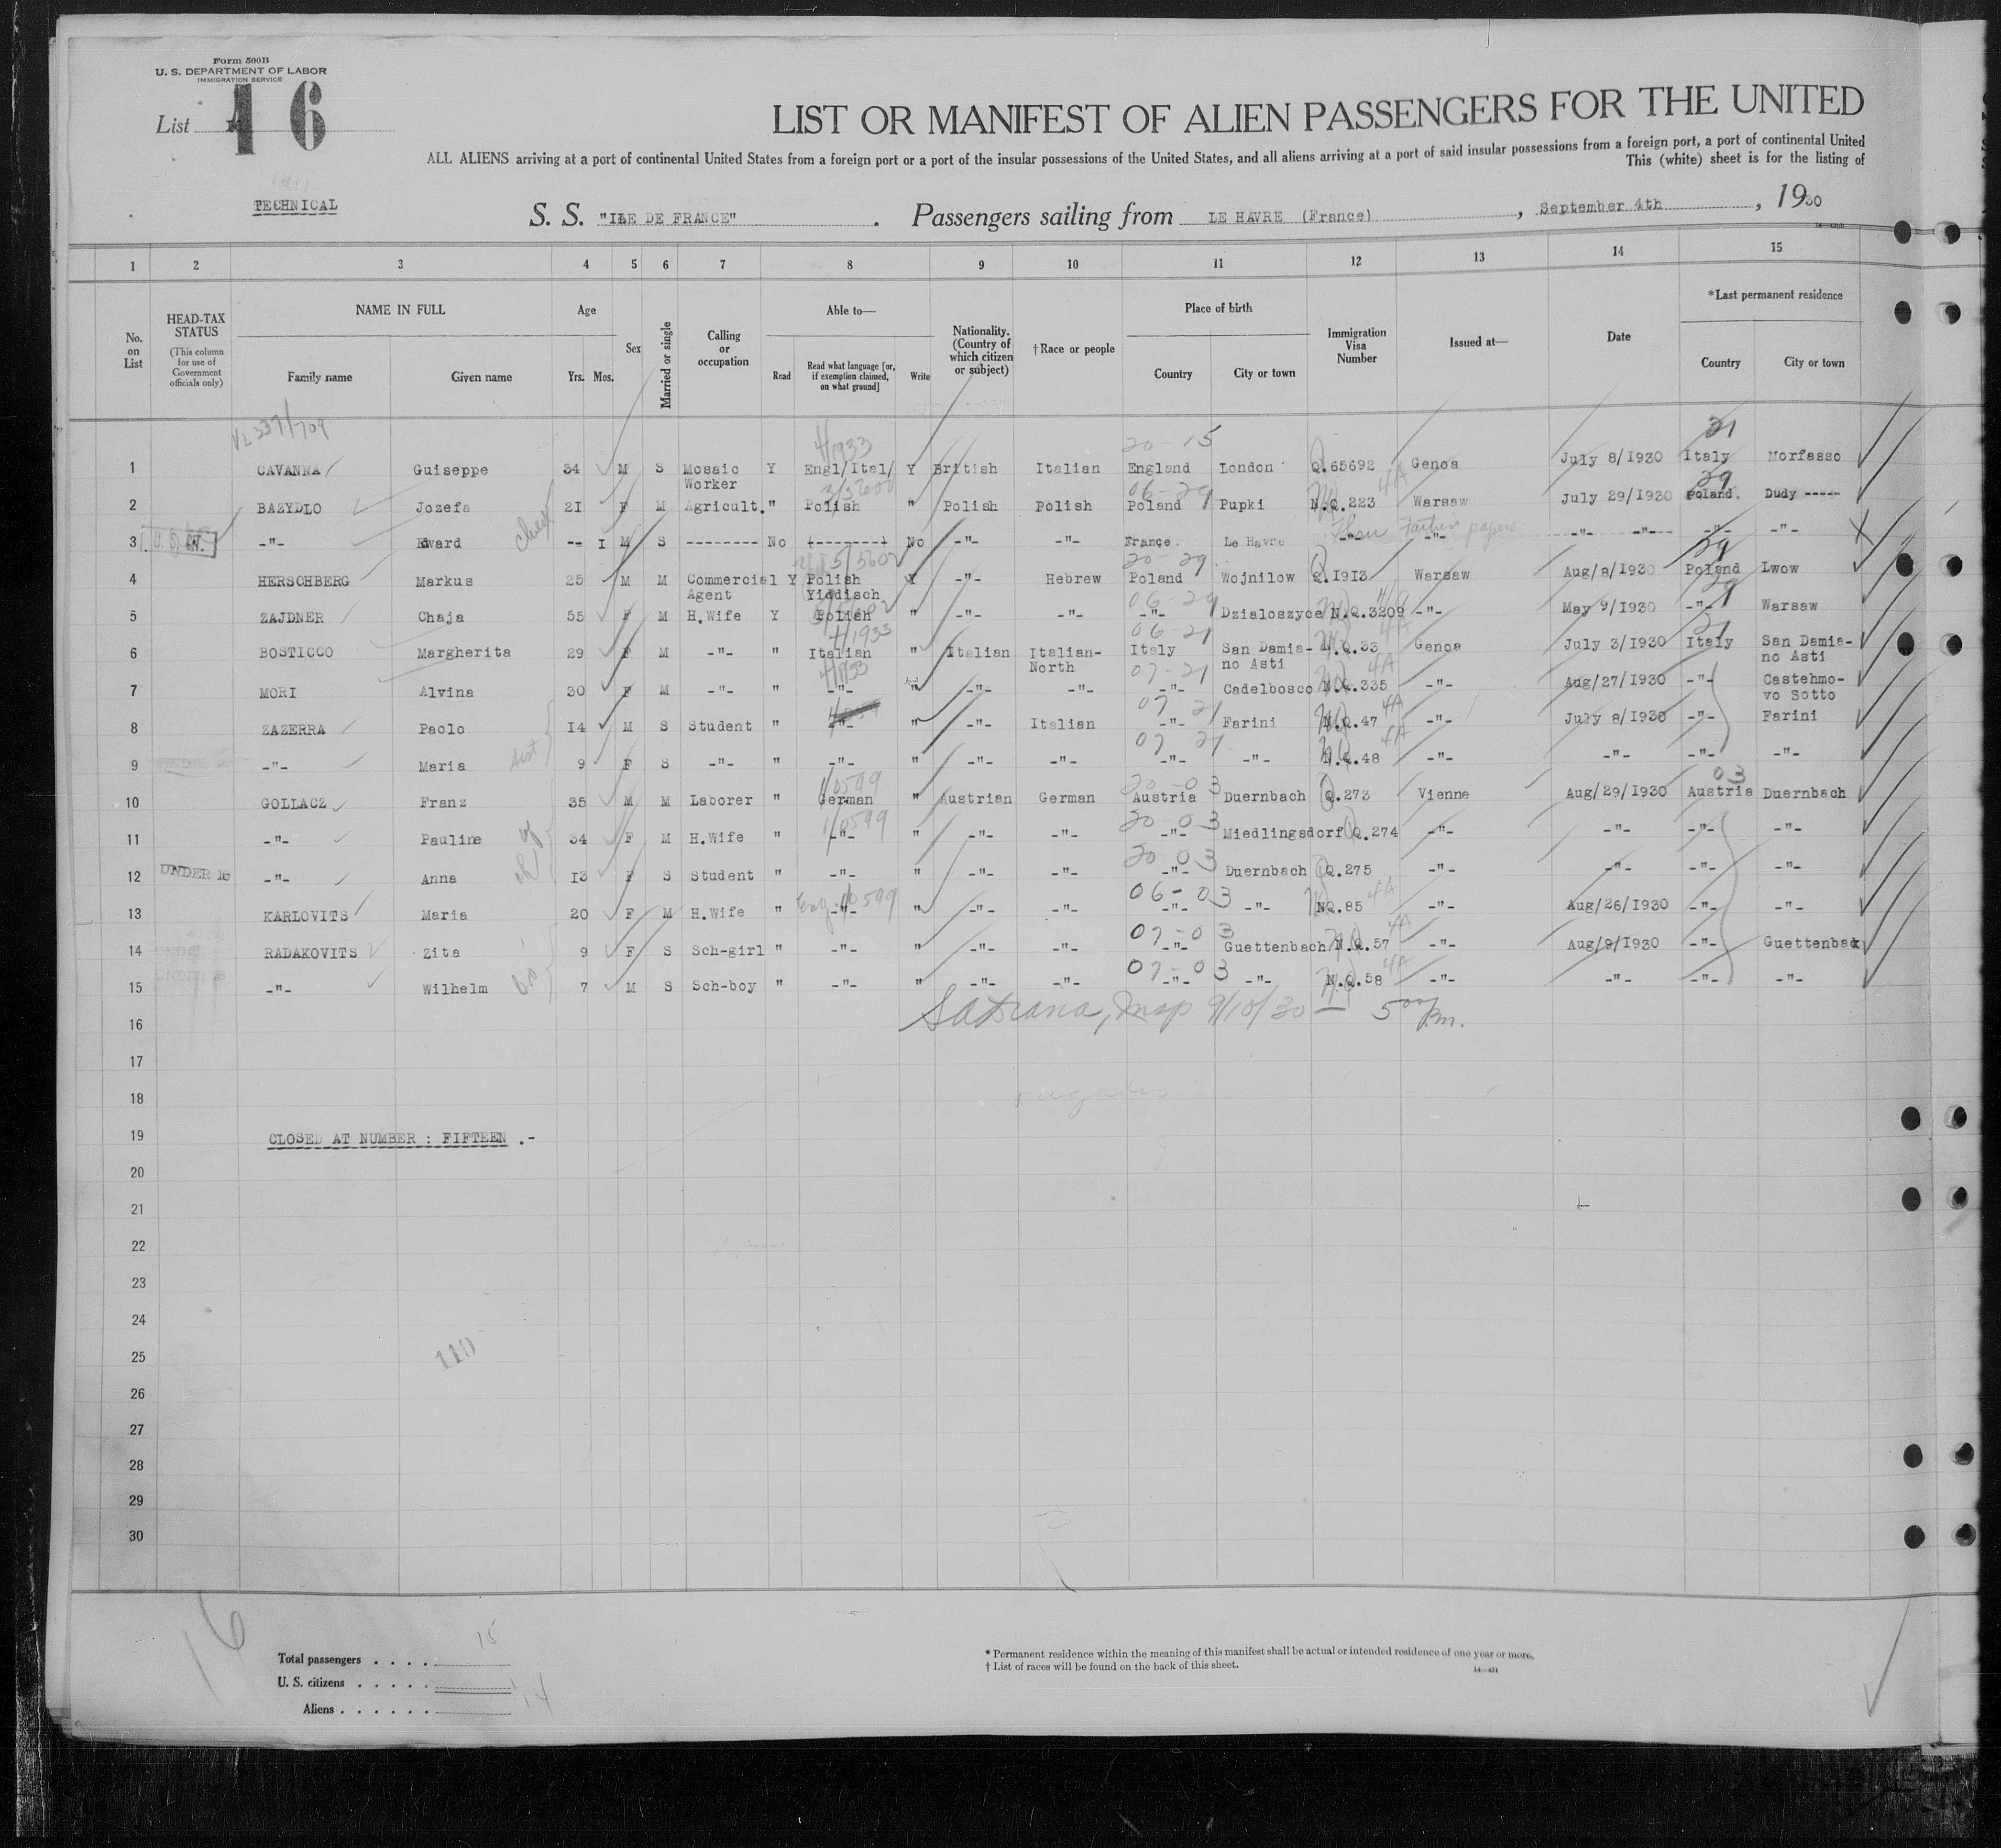 Form 500B
U. S. DEPARTMENT OF LABOR
IMMIGRATION SERVICE
List 16
LIST OR MANIFEST OF ALIEN PASSENGERS FOR THE UNITED
ALL ALIENS arriving at a port of continental United States from a foreign port or a port of the insular possessions of the United States, and all aliens arriving at a port of said insular possessions from a foreign port, a port of continental United
This (white) sheet is for the listing of
TECHNICAL
S. S. "ILE DE FRANCE" . Passengers sailing from LE HAVRE (France) , September 4th , 1930
1 2 3 4 5 6 7 8 9 10 11 12 13 14 15
No. on List
HEAD-TAX STATUS (This column for use of Government officials only)
NAME IN FULL Family name Given name
Age Yrs. Mos.
Sex
Married or single
Calling or occupation
Able to— Read Read what language [or, if exemption claimed, on what ground] Write
Nationality. (Country of which citizen or subject)
†Race or people
Place of birth Country City or town
Immigration Visa Number
Issued at—
Date
*Last permanent residence Country City or town
VL 337/709 4/1933 20-15 21
1 CAVANNA Guiseppe 34 M S Mosaic Worker Y Engl/Ital/ Y British Italian England London Q.65692 Genoa July 8/1930 Italy Morfasso
3/3600 06-29 4A 29
2 BAZYDLO Jozefa 21 F M Agricult. " Polish " Polish Polish Poland Pupki N.Q.223 Warsaw July 29/1930 Poland. Dudy -----
3 -"- Edward -- I M S -------- No (--------) No -"- -"- France. Le Havre -"- -"- -"- -"- -"- -"-
20-29 29
4 HERSCHBERG Markus 25 M M Commercial Agent Y Polish Yiddisch Y -"- Hebrew Poland Wojnilow Q.1913 Warsaw Aug/8/1930 Poland Lwow
06-29 29
5 ZAJDNER Chaja 55 F M H.Wife Y Polish " -"- -"- -"- Dzialoszyce N.Q.3209 -"- May 9/1930 -"- Warsaw
4/1933 06-21 4A 21
6 BOSTICCO Margherita 29 F M -"- " Italian " Italian Italian-North Italy San Damiano Asti N.Q.33 Genoa July 3/1930 Italy San Damiano Asti
4/1933 07-21 4A
7 MORI Alvina 30 F M -"- " -"- " -"- -"- -"- Cadelbosco N.Q.335 -"- Aug/27/1930 -"- Castehmovo Sotto
07 21 4A
8 ZAZERRA Paolo 14 M S Student " -"- " -"- Italian -"- Farini N.Q.47 -"- July 8/1930 -"- Farini
07 21 4A
9 -"- Maria 9 F S -"- " -"- " -"- -"- -"- -"- N.Q.48 -"- -"- -"- -"-
1/0599 20-03 03
10 GOLLACZ Franz 35 M M Laborer " German " Austrian German Austria Duernbach Q.273 Vienne Aug/29/1930 Austria Duernbach
1/0599 20-03
11 -"- Pauline 34 F M H.Wife " -"- " -"- -"- -"- Miedlingsdorf Q.274 -"- -"- -"- -"-
20 03
12 UNDER 16 -"- Anna 13 F S Student " -"- " -"- -"- -"- Duernbach Q.275 -"- -"- -"- -"-
06-03 4A
13 KARLOVITS Maria 20 F M H.Wife " -"- " -"- -"- -"- -"- NQ.85 -"- Aug/26/1930 -"- -"-
07-03 4A
14 RADAKOVITS Zita 9 F S Sch-girl " -"- " -"- -"- -"- Guettenbach N.Q.57 -"- Aug/9/1930 -"- Guettenback
07-03 4A
15 UNDER 16 -"- Wilhelm 7 M S Sch-boy " -"- " -"- -"- -"- -"- N.Q.58 -"- -"- -"- -"-
16 Insp 9/10/30 — 5 00 Pm.
17
18
19 CLOSED AT NUMBER : FIFTEEN .-
20
21
22
23
24
25 110
26
27
28
29
30
16
Total passengers . . . . 15
U. S. citizens . . . . . 1
Aliens . . . . . . 14
* Permanent residence within the meaning of this manifest shall be actual or intended residence of one year or more.
† List of races will be found on the back of this sheet.